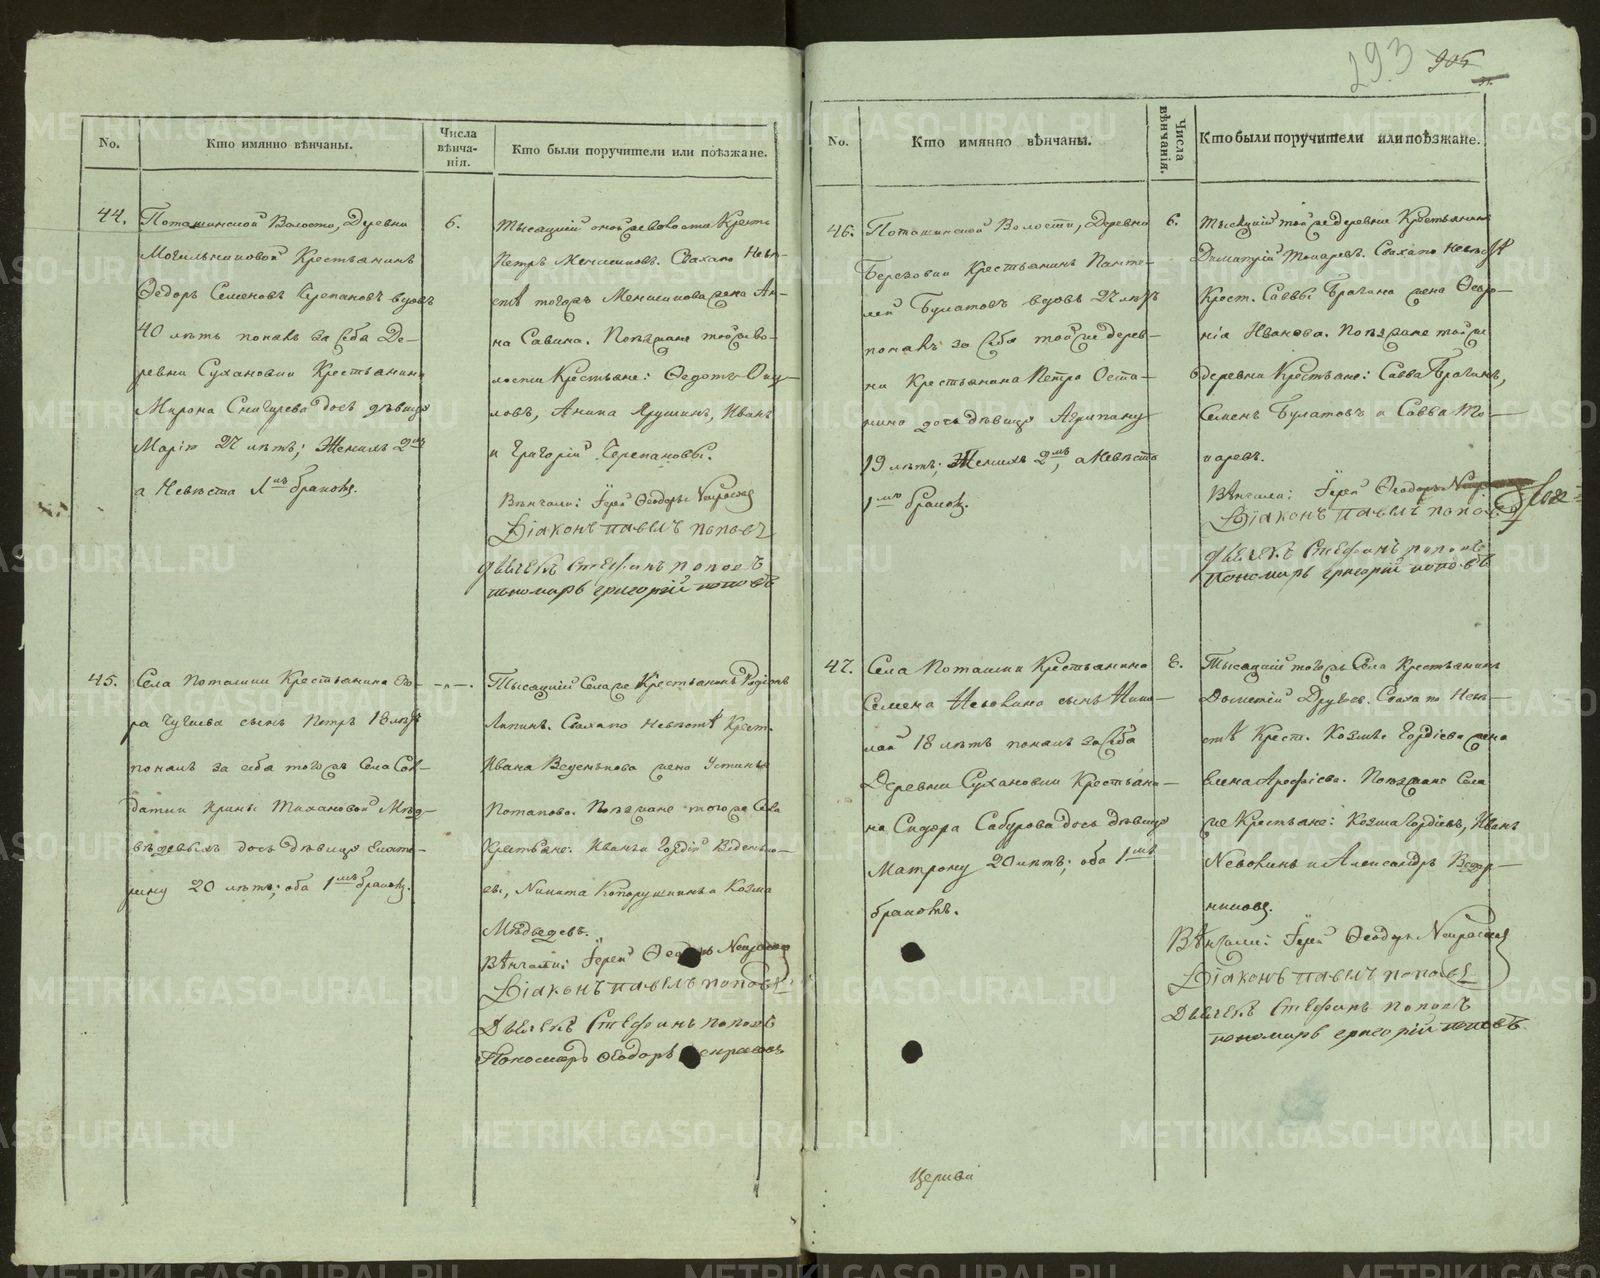 293 905
No. Кто имянно вѣнчаны. Числа вѣнча-нія. Кто были поручители или поѣзжане.
44.
Поташинской Волости, Деревни
Могильниковой Крестьянинъ
Ѳедоръ Семеновъ Черепановъ вдовъ
40 лѣтъ понялъ за себя Де-
ревни Сухановки Крестьянина
Мирона Снигирева дочь дѣвицу
Марію 27 лѣтъ; Женихъ 2мъ
а Невѣста 1мъ бракомъ.
6.
Тысяцкій оной же волости Крест:
Петръ Меншиковъ. Сваха по Невѣ-
стѣ тогожъ Меншикова жена Ан-
на Савина. Поѣзжане той же во-
лости Крестьяне: Ѳедотъ
Аника Ярушинъ, Иванъ
и Григорій Черепановы.
Вѣнчали: Іерей Ѳеодоръ Некрасовъ
Діаконъ Павелъ Поповъ
Дьячекъ Стефанъ Поповъ
Пономарь Григорій Поповъ
45.
Села Поташки Крестьянина
сынъ Петръ 18 лѣтъ
понялъ за себя тогожъ Села Сол-
датки Ирины Тихановой Мѣд-
вѣдевыхъ дочь дѣвицу Екате-
рину 20 лѣтъ; оба 1мъ бракомъ.
-"-.
Тысяцкій Села же Крестьянинъ Родіонъ
Липинъ. Сваха по Невѣстѣ Крест.
Ивана Веденькова жена Устинья
Потапова. Поѣзжане того же Села
Крестьяне: Иванъ и Гордій Веденько-
вы, Никита и Козма
Мѣдведевъ.
Вѣнчали: Іерей Ѳеодоръ Некрасовъ
Діаконъ Павелъ Поповъ
Дьячекъ Стефанъ Поповъ
Пономарь Ѳеодоръ Некрасовъ
No. Кто имянно вѣнчаны. Числа вѣнчанія. Кто были поручители или поѣзжане.
46.
Поташинской Волости, Деревни
Березовки Крестьянинъ Панте-
лей Булатовъ вдовъ 27 лѣтъ
понялъ за себя той же дерев-
ни Крестьянина Петра Оста-
нина дочь дѣвицу Агрипину
19 лѣтъ; Женихъ 2мъ, а Невѣста
1мъ бракомъ.
6.
Тысяцкій той же деревни Крестьянинъ
Димитрій Токаревъ. Сваха по Невѣстѣ
Крест. Саввы Брагина жена Ѳеѳро-
нія Иванова. Поѣзжане той же
деревни Крестьяне: Савва Брагинъ,
Семенъ Булатовъ и Савва То-
каревъ.
Вѣнчали: Іерей Ѳеодоръ
Діаконъ Павелъ Поповъ
Дьячекъ Стефанъ Поповъ
Пономарь Григорій Поповъ
47.
Села Поташки Крестьянина
Семена Невокина сынъ Нико-
лай 18 лѣтъ понялъ за себя
Деревни Сухановки Крестьяни-
на Сидора Сабурова дочь дѣвицу
Матрону 20 лѣтъ; оба 1мъ
бракомъ.
6.
Тысяцкій тогожъ Села Крестьянинъ
Дометій Сваха по Невѣ-
стѣ Крест. Козмы Гордіева жена
Елена Арефіева. Поѣзжане Села
же Крестьяне: Козма Гордіевъ, Иванъ
Невокинъ и Александръ
Вѣнчали: Іерей Ѳеодоръ Некрасовъ
Діаконъ Павелъ Поповъ
Дьячекъ Стефанъ Поповъ
Пономарь Григорій Поповъ
Церкви
METRIKI.GASO-URAL.RU